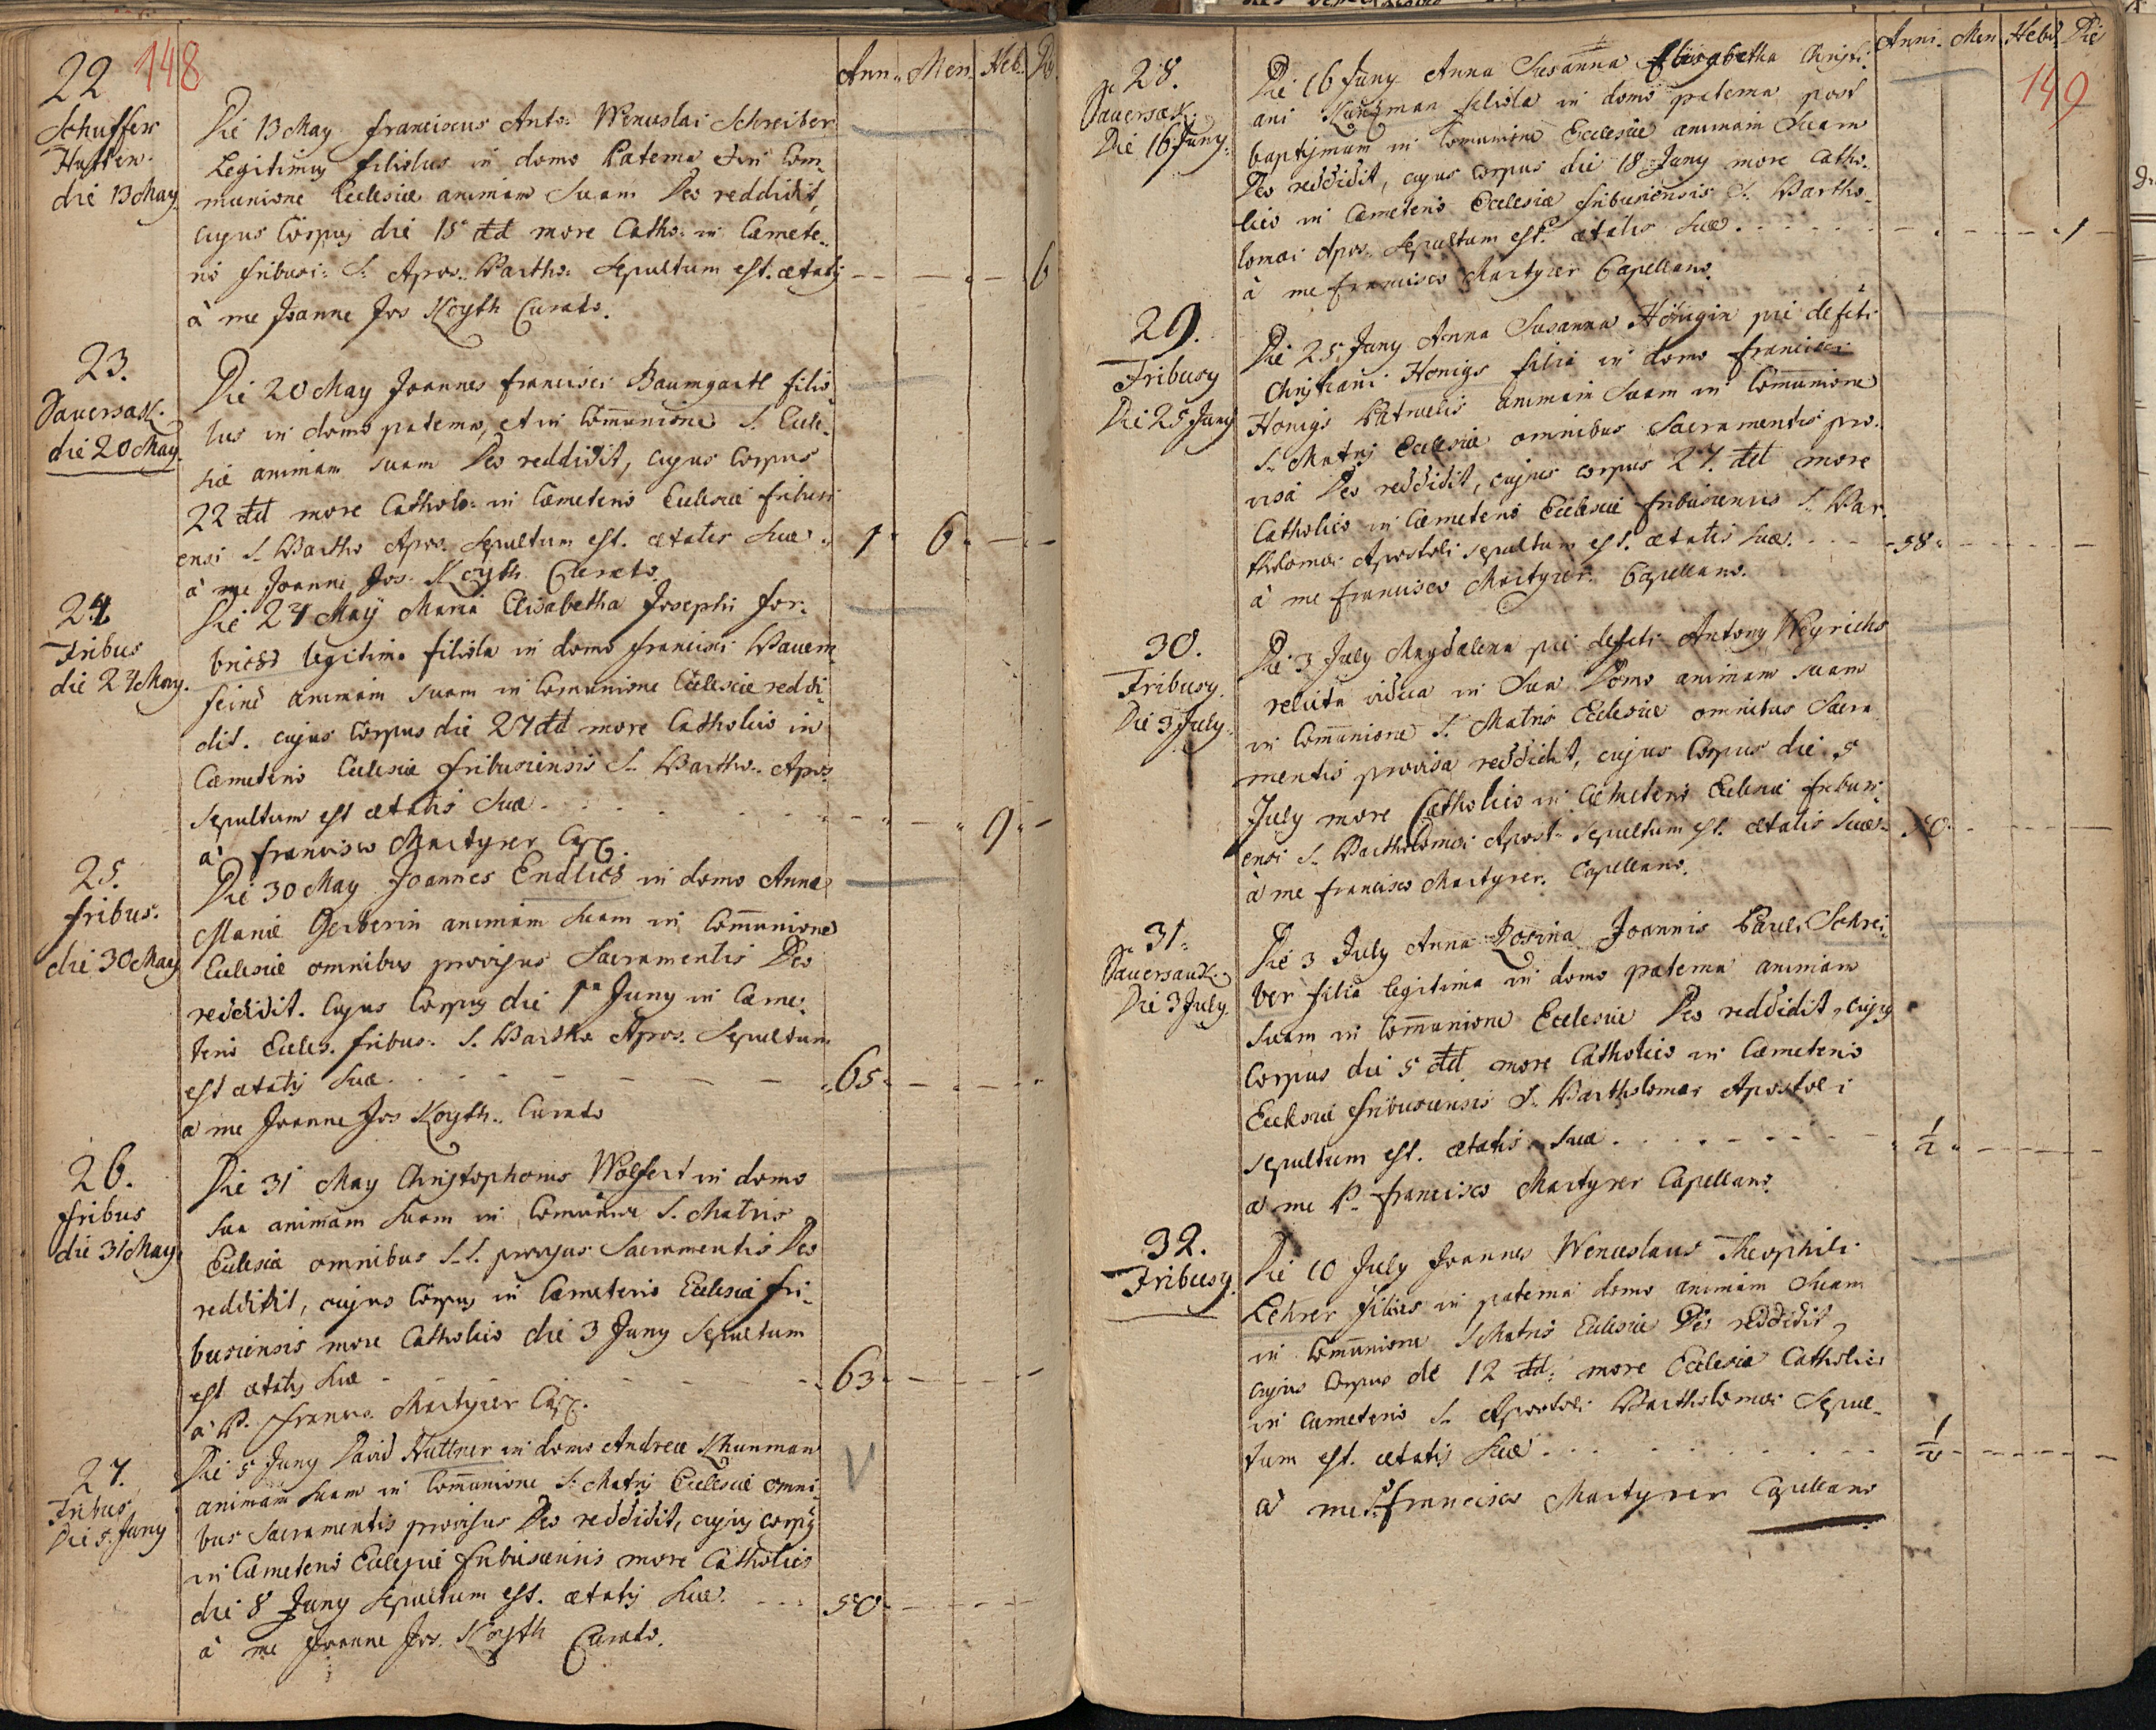 148
Ann. Men. Heb. Di.
22
Schuffer
Hutten.
die 13 May.
Die 13 May Franciscus Anto: Wenceslai Schreiber
Legitimus filiolus in domo Paterna et in Com-
munione Ecclesiæ animam suam Deo reddidit,
cujus Corpus die 15 dtd more Catho: in Cæmete-
rio fribusi: S. Apos: Bartho: Sepultum est. ætatis -- -- -- 6
à me Joanne Jos Koyth Curato.
23.
Sauersak.
die 20 May.
Die 20 May Joannes Francisci Baumgartl filio-
lus in domo paterna, et in Com̄unione S. Eccle-
siæ animam suam Deo reddidit, cujus Corpus
22 dtd more Catholo: in Cæmeterio Ecclesiæ fribusi
ensi S. Bartho Apos. Sepultum est. ætatis suæ. 1. 6. -- --
à me Joanne Jos. Koyth Curato.
24
Fribus
die 24 May.
Die 24 Maÿ Maria Elisabetha Josephi For-
briss legitima filiola in domo Francisci Bauern-
feind animam suam in Com̄unione Ecclesiæ reddi-
dit. cujus Corpus die 27 dtd more Catholico in
Cæmeterio Ecclesiæ fribusiensis S. Bartho: Apos:
sepultum est ætatis suæ. -- -- 9. --
à Francisco Martyrer Cap.
25.
fribus.
die 30 May
Die 30 May Joannes Endlich in domo Annæ
Mariæ Gerberin animam suam in Com̄unione
Ecclesiæ omnibus provisus Sacramentis Deo
reddidit. Cujus Corpus die 1ma Juny in Cæme-
terio Eccles. fribus: S. Bartho Apos. Sepultum
est ætatis suæ. 65. -- -- --
à me Joanne Jos Koyth. Curato
26.
fribus
die 31 May.
Die 31 May Christophorus Wolfert in domo
sua animam suam in Com̄unione S. Matris
Ecclesiæ omnibus S.S. provisus Sacramentis Deo
reddidit, cujus Corpus in Cæmeterio Ecclesiæ fri-
busiensis more Catholico die 3 Juny Sepultum
est ætatis suæ 63. -- -- --
à P. Franco. Martyrer Cap.
27.
Fribus
Die 5 Juny
Die 5 Juny David Huttner in domo Andreæ Khunman
animam suam in Com̄unione S. Matris Ecclesiæ omni-
bus Sacramentis provisus Deo reddidit, cujus corpus
in Cæmeterio Ecclesiæ fribusiensis more Catholico
die 8 Juny Sepultum est. ætatis suæ. 50. -- -- --
à me Joanne Jos. Koyth Curato.
149
Anni. Men. Hebd. Die
28.
Sauersak.
Die 16 Juny.
Die 16 Juny Anna Susanna Elisabetha Christi-
ani Kunzman filiola in domo paterna post
baptismum in Comunione Ecclesiæ animam suam
Deo reddidit, cujus Corpus die 18 Juny more Catho-
lico in Cæmeterio Ecclesiæ fribusiensis S. Bartho-
lomæi Apos. Sepultum est. ætatis suæ. -- -- -- 1
à me Francisco Martyrer Capellano.
29.
Fribusy
Die 25 Juny
Die 25 Juny Anna Susanna Hönigin pie defcti
Christiani Honigs filia in domo Francisci
Honigs Patruelis animam suam in Com̄unione
S. Matris Ecclesiæ omnibus Sacramentis pro-
visa Deo reddidit, cujus corpus 27. dtd more
Catholico in Cæmeterio Ecclesiæ fribusiensis S. Bar-
tholomæi Apostoli sepultum est. ætatis suæ. 58. -- -- --
à me Francisco Martyrer. Capellano.
30.
Fribusy.
Die 3 July.
Die 3 July Magdalena pie defcti Antony Weyrichs
relicta vidua in sua Domo animam suam
in Com̄unione S. Matris Ecclesiæ omnibus Sacra
mentis provisa reddidit, cujus Corpus die 5
July more Catholico in Cæmeterio Ecclesiæ fribusi-
ensi S. Bartholomæi Apost. sepultum est. ætatis suæ. 50. -- -- --
à me Francisco Martyrer. Capellano.
31.
Sauersauk.
Die 3 July.
Die 3 July Anna Rosina Joannis Pauli Schrei-
ber filia legitima in domo paterna animam
suam in Com̄unione Ecclesiæ Deo reddidit, cujus
Corpus die 5 dtd more Catholico in Cæmeterio
Ecclesiæ fribusiensis S. Bartholomæi Apostoli
sepultum est. ætatis suæ. 1/2. -- -- --
à me P. Francisco Martyrer Capellano.
32.
Fribusy.
Die 10 July Joannes Wenceslaus Theophili
Lehrer filius in paterna domo animam suam
in Com̄unione S Matris Ecclesiæ Deo reddidit
cujus Corpus de 12 dtd: more Ecclesiæ Catholico
in cæmeterio S. Apostoli Bartholomæi Sepul-
tum est. ætatis suæ. -- -- --
à me P. Francisco Martyrer Capellano